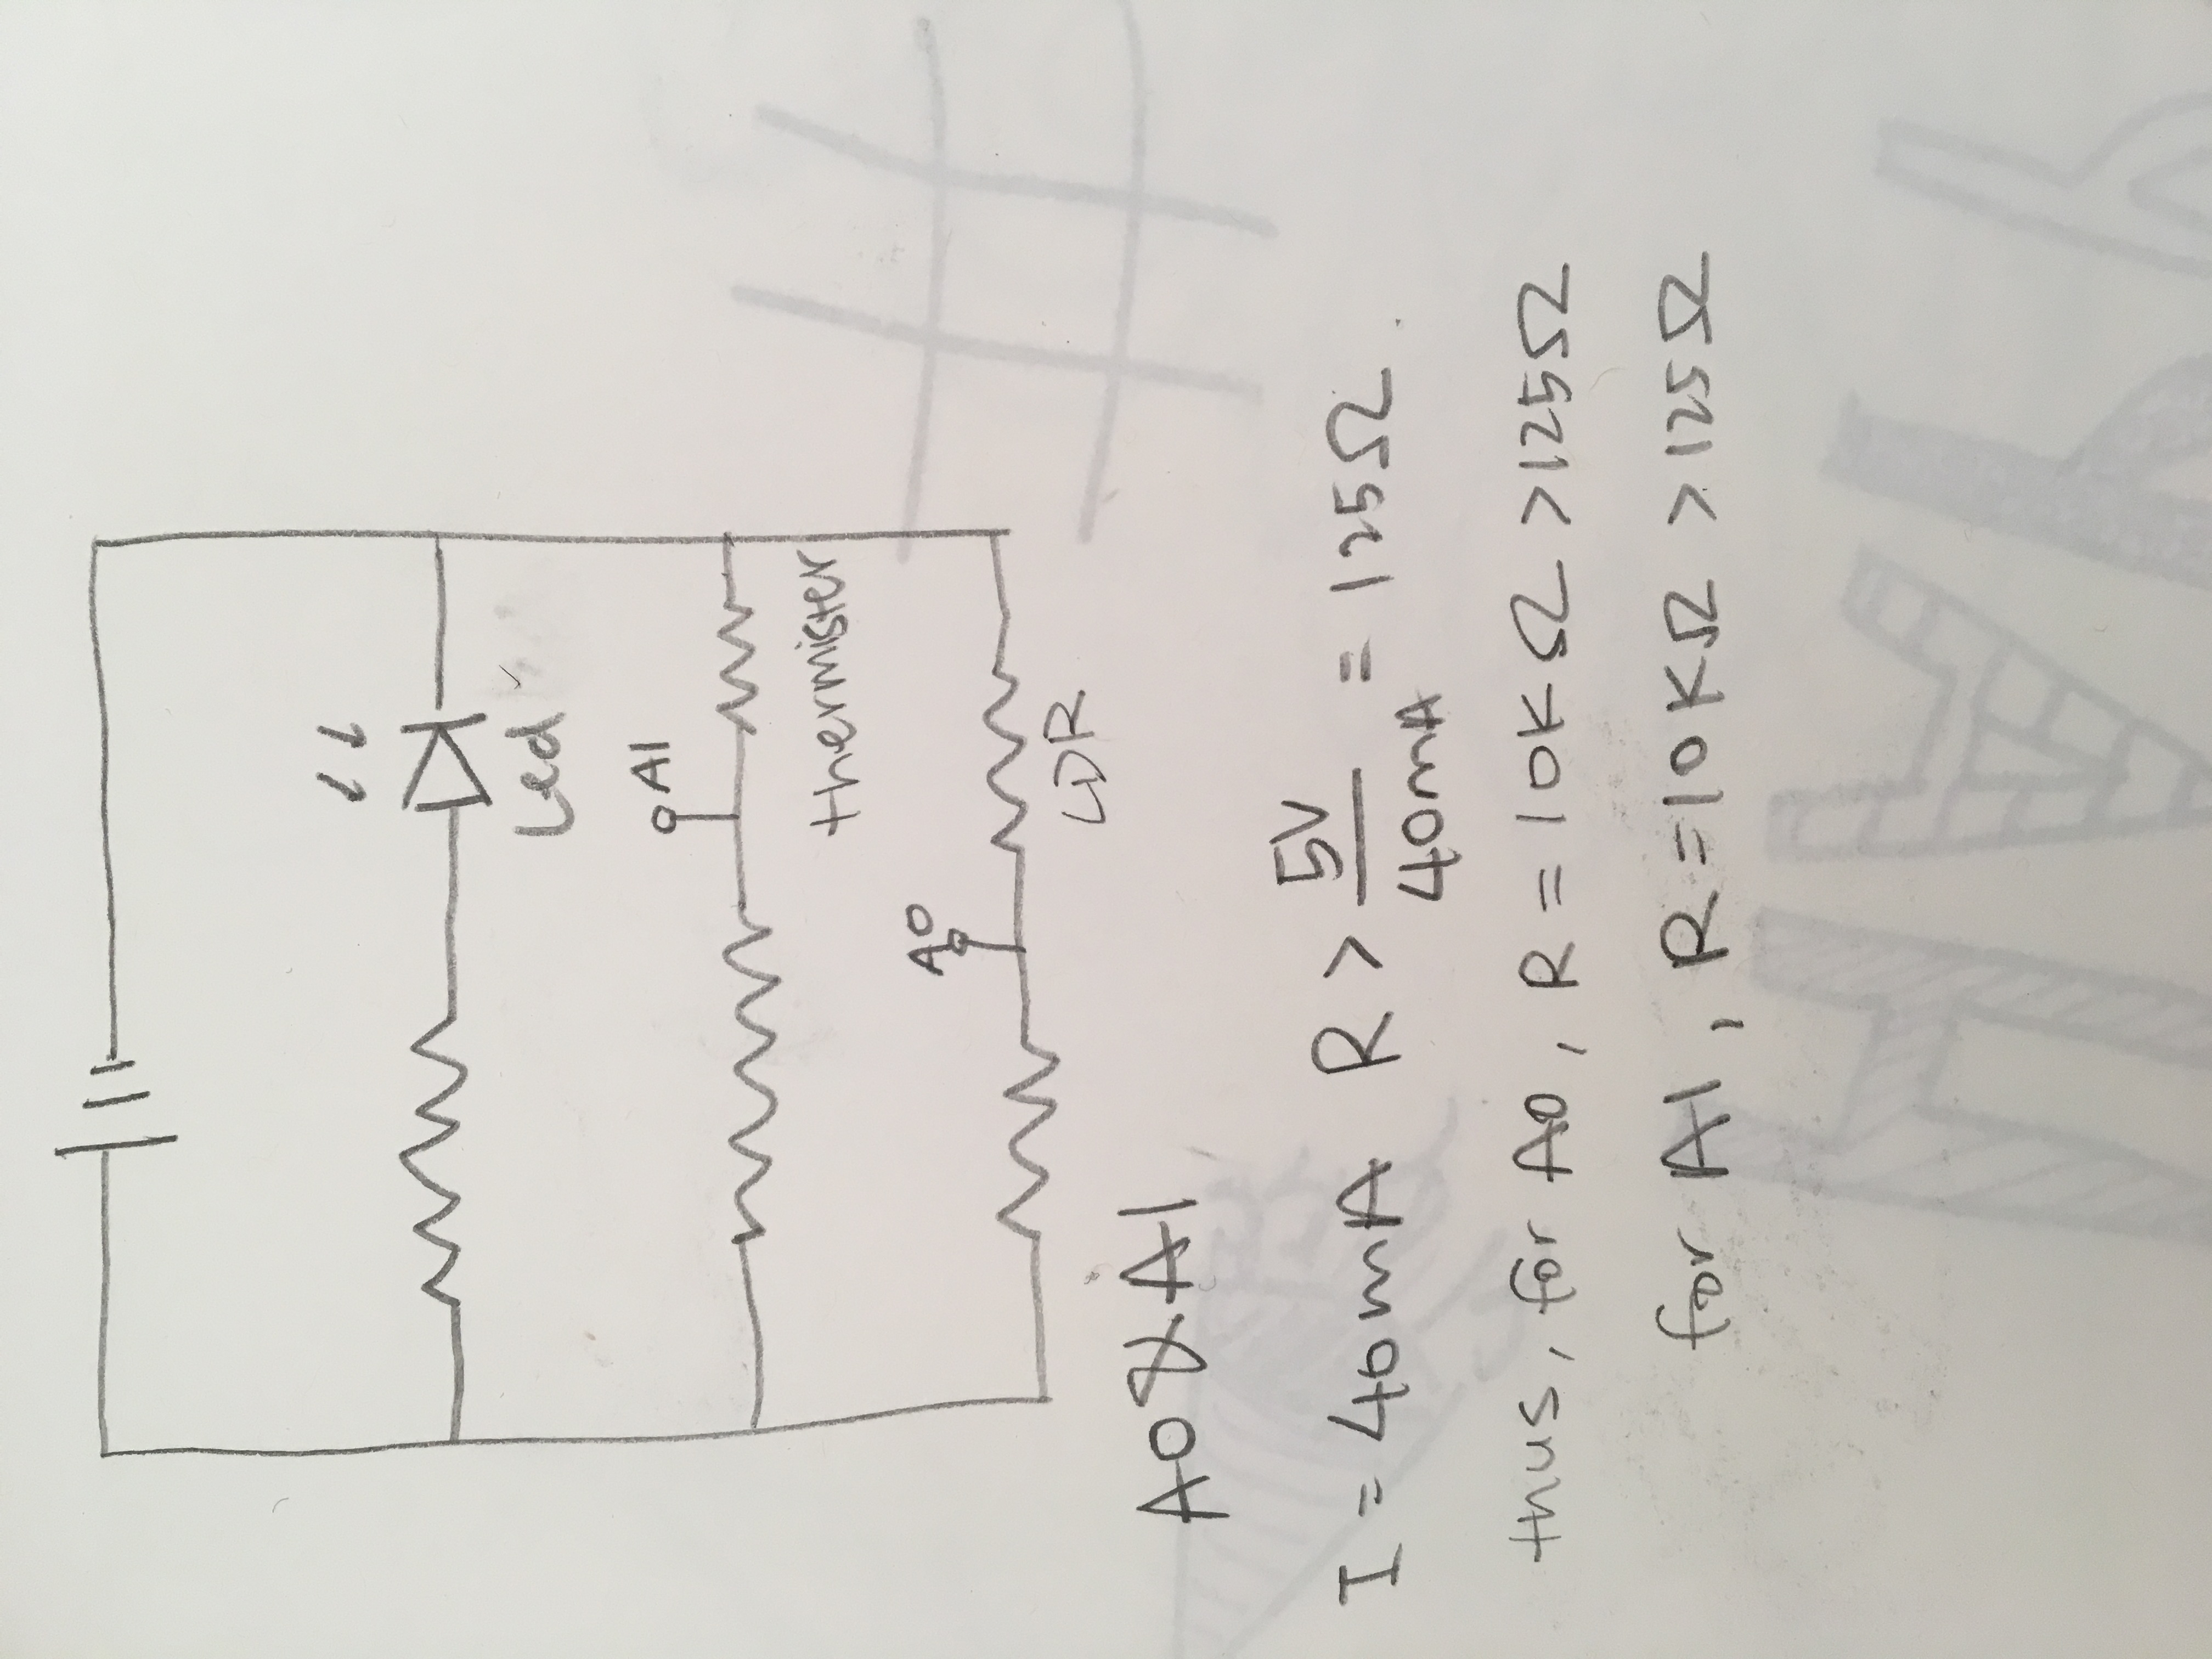 Led
A1
thermister
A0
LDR
A0 & A1
I = 40mA R > 5V / 40mA = 125Ω.
thus, for A0, R = 10KΩ >125Ω
for A1, R =10KΩ >125Ω